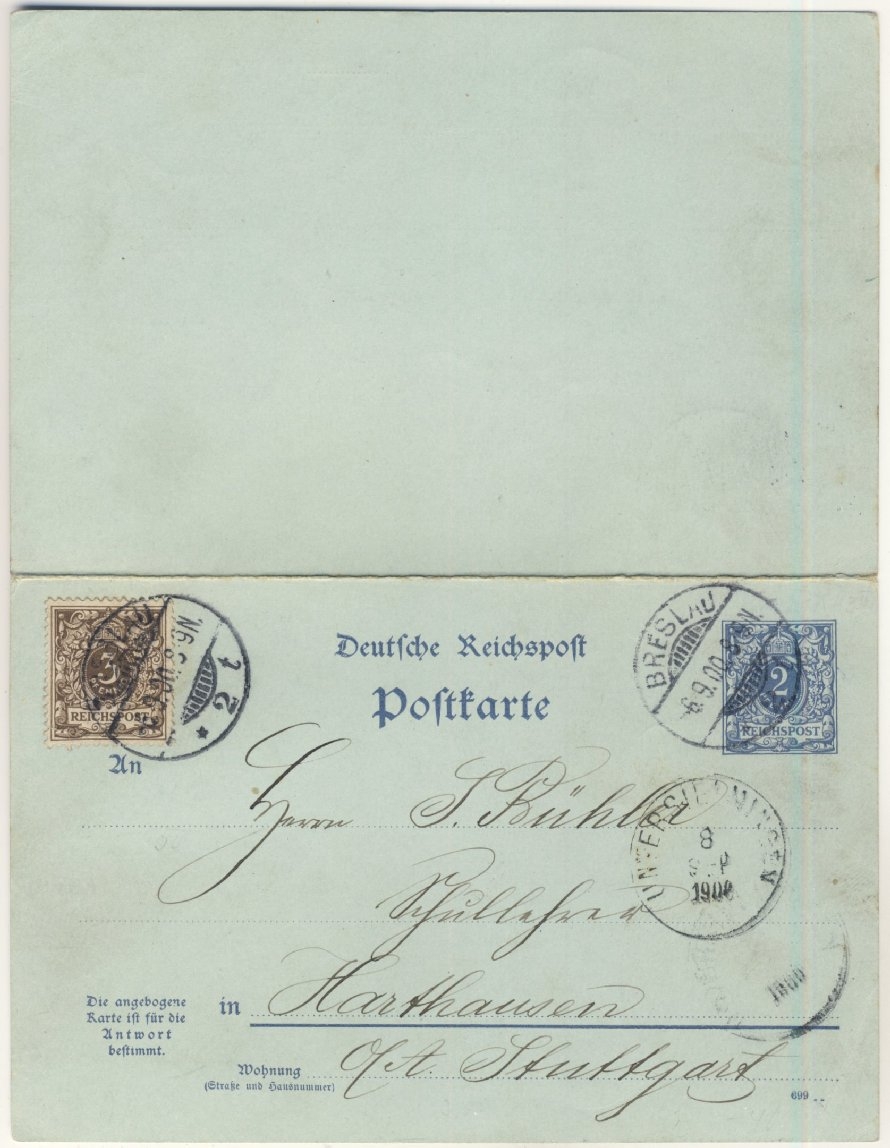 Deutsche Reichspost
Postkarte
3
REICHSPOST
2 t
BRESLAU
6.9.00.8-9N.
2
REICHSPOST
An
Herrn S. Bühler
UNTERSIELMINGEN
8
SEP
1900
Schullehrer
in Harthausen
Die angebogene
Karte ist für die
Antwort
bestimmt.
O/A. Stuttgart
Wohnung
(Straße und Hausnummer)
699